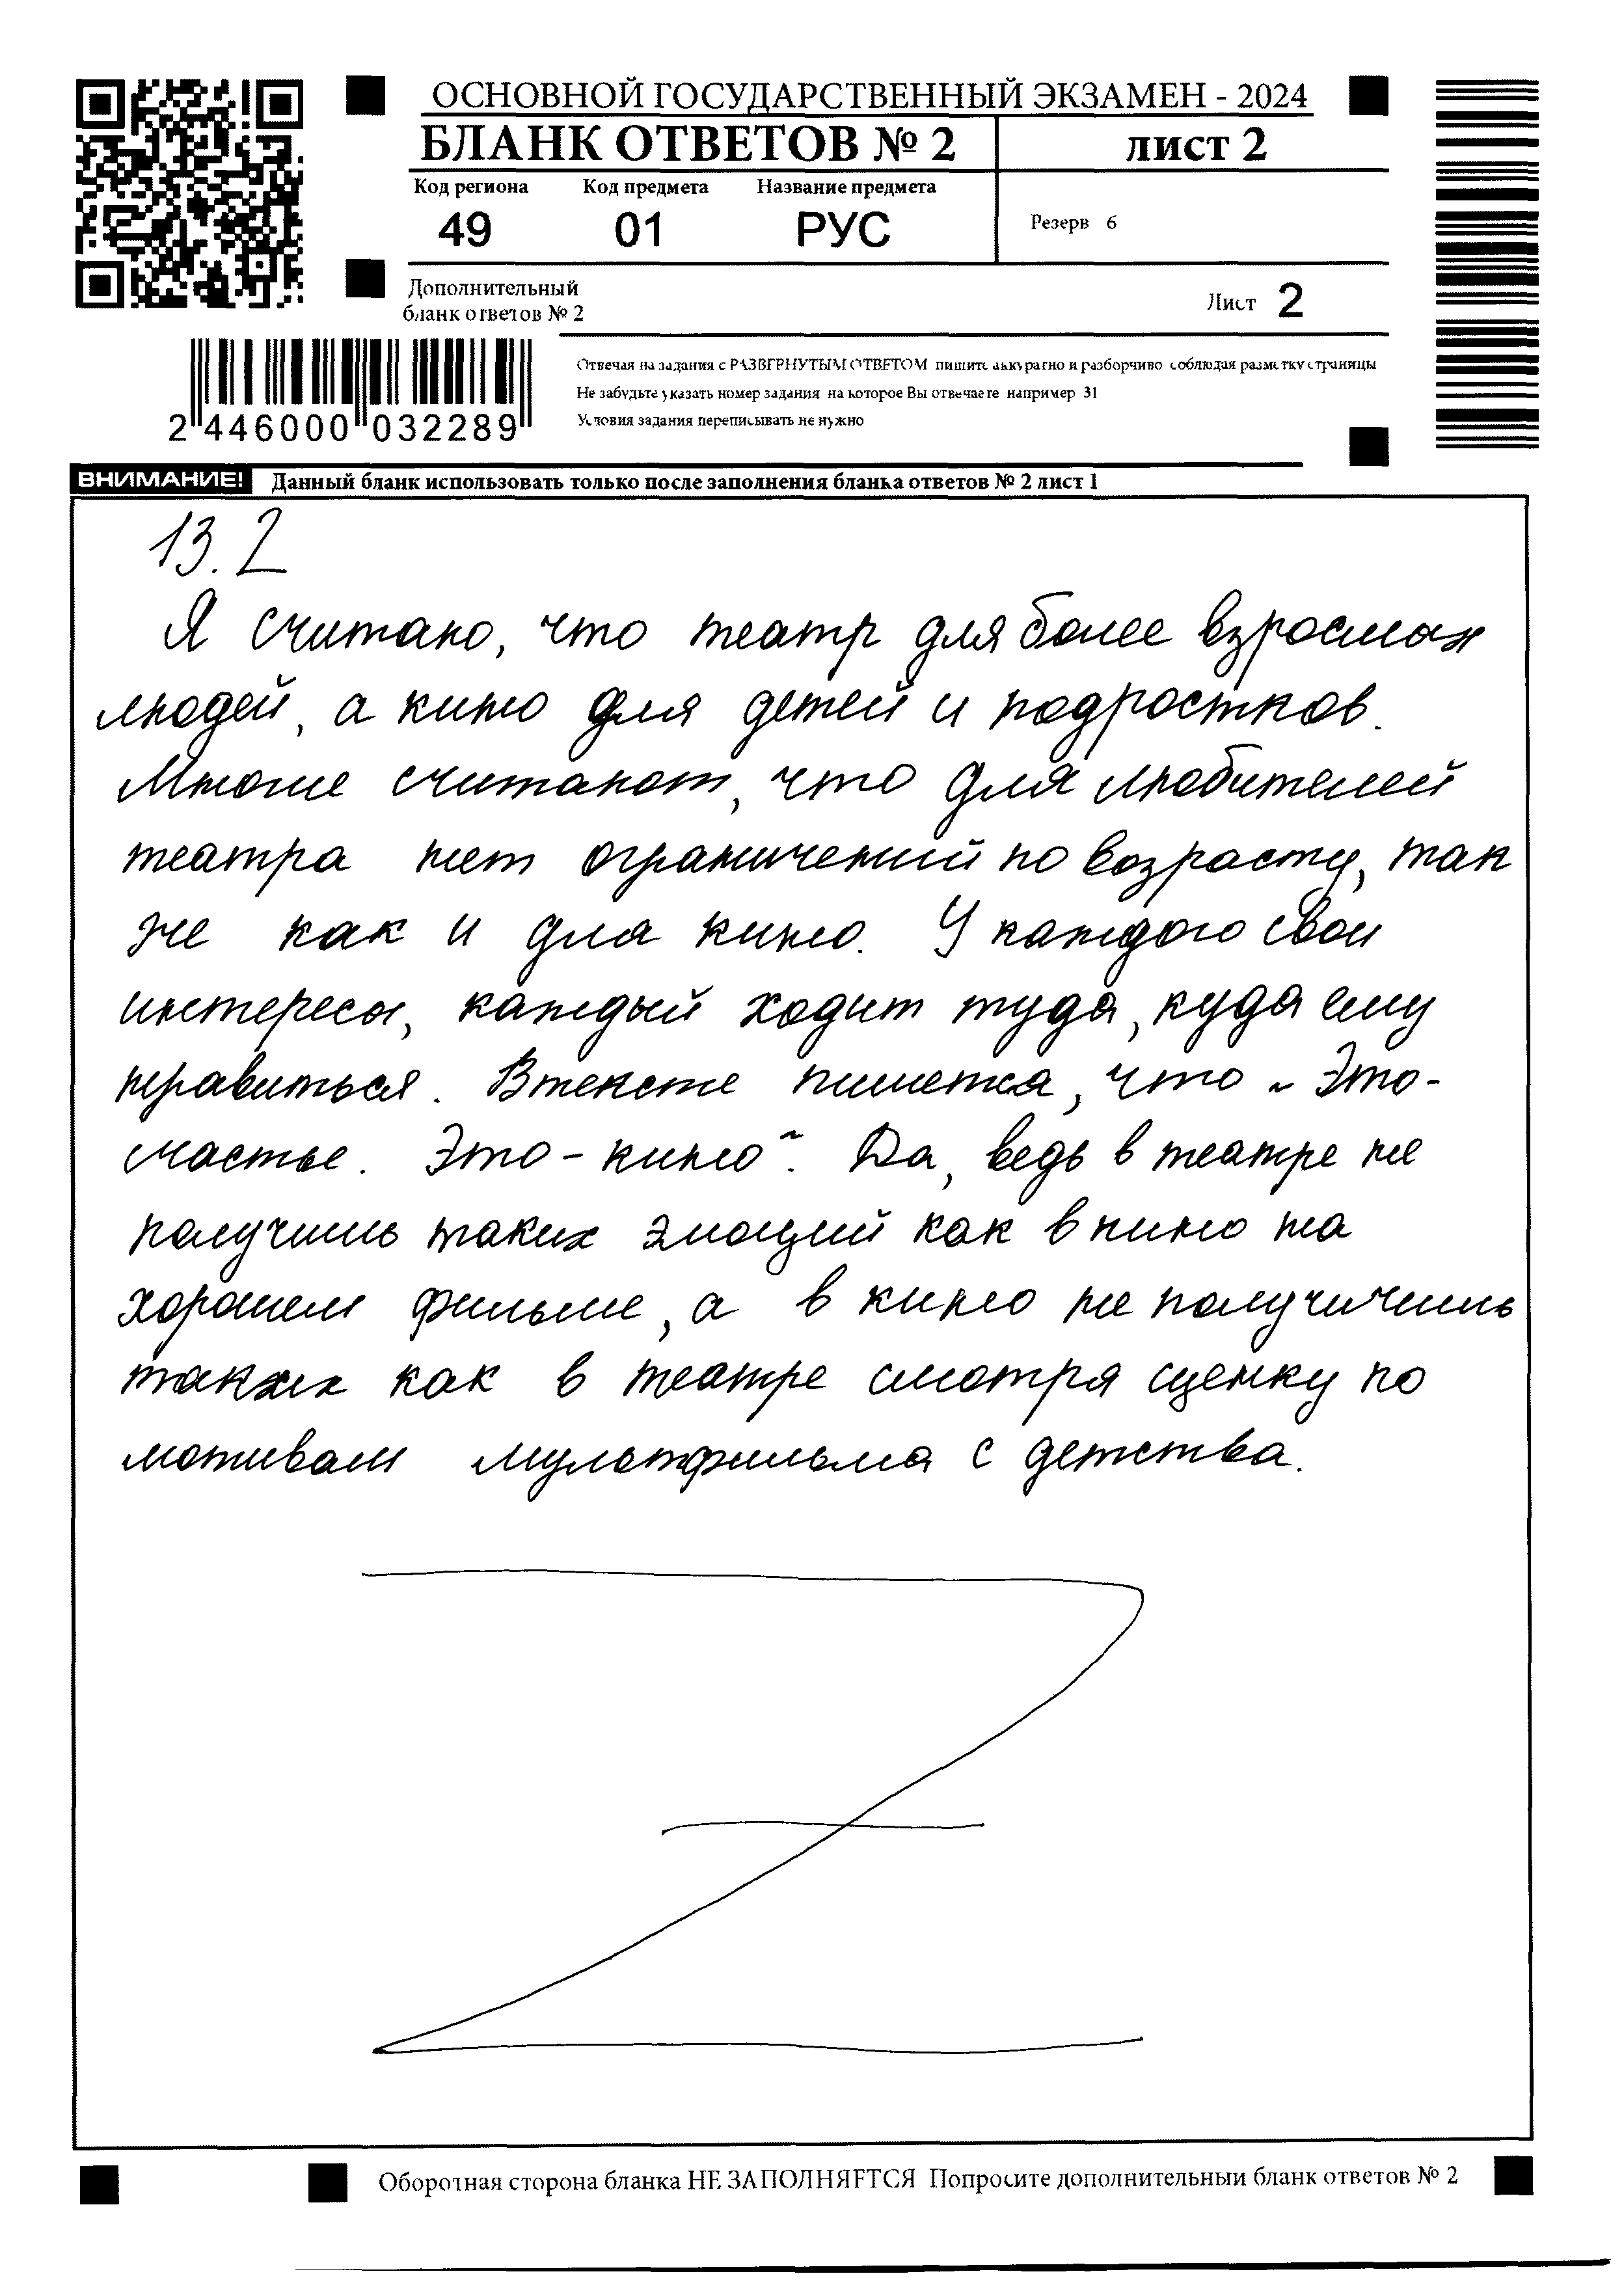 ОСНОВНОЙ ГОСУДАРСТВЕННЫЙ ЭКЗАМЕН - 2024
БЛАНК ОТВЕТОВ № 2
лист 2
Код региона Код предмета Название предмета
49 01 РУС
Резерв 6
Дополнительный
бланк ответов № 2
Лист 2
Отвечая на задания с РАЗВЕРНУТЫМ ОТВЕТОМ пишите аккуратно и разборчиво соблюдая разметку страницы
Не забудьте указать номер задания на которое Вы отвечаете например 31
Условия задания переписывать не нужно
2 446000 032289
ВНИМАНИЕ! Данный бланк использовать только после заполнения бланка ответов № 2 лист 1
13.2
Я считаю, что театр для более взрослых
людей, а кино для детей и подростков.
Многие считают, что для любителей
театра нет ограничений по возрасту, так
же как и для кино. У каждого свои
интересы, каждый ходит туда, куда ему
нравиться. В тексте пишется, что "Это-
счастье. Это - кино". Да, ведь в театре не
получишь таких эмоций как в кино на
хорошем фильме, а в кино не получичишь
таких как в театре смотря сценку по
мотивам мультфильма с детства.
Оборотная сторона бланка НЕ ЗАПОЛНЯЕТСЯ Попросите дополнительный бланк ответов № 2